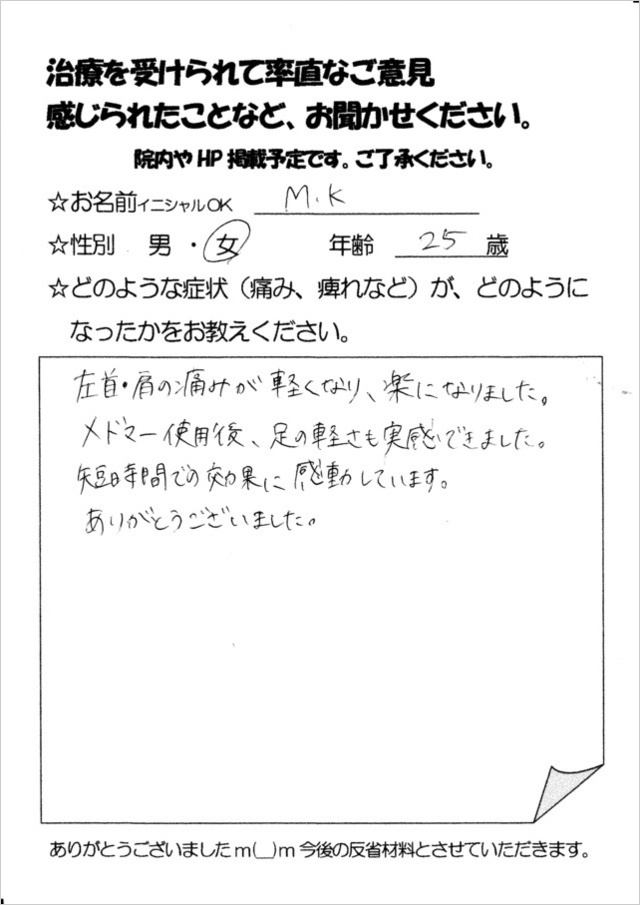 治療を受けられて率直なご意見
感じられたことなど、お聞かせください。
院内やHP掲載予定です。ご了承ください。
☆お名前イニシャルOK M.K
☆性別 男・女 年齢 25 歳
☆どのような症状（痛み、痺れなど）が、どのように
なったかをお教えください。
左首・肩の痛みが軽くなり、楽になりました。
メドマー使用後、足の軽さも実感できました。
短時間での効果に感動しています。
ありがとうございました。
ありがとうございましたm(__)m今後の反省材料とさせていただきます。